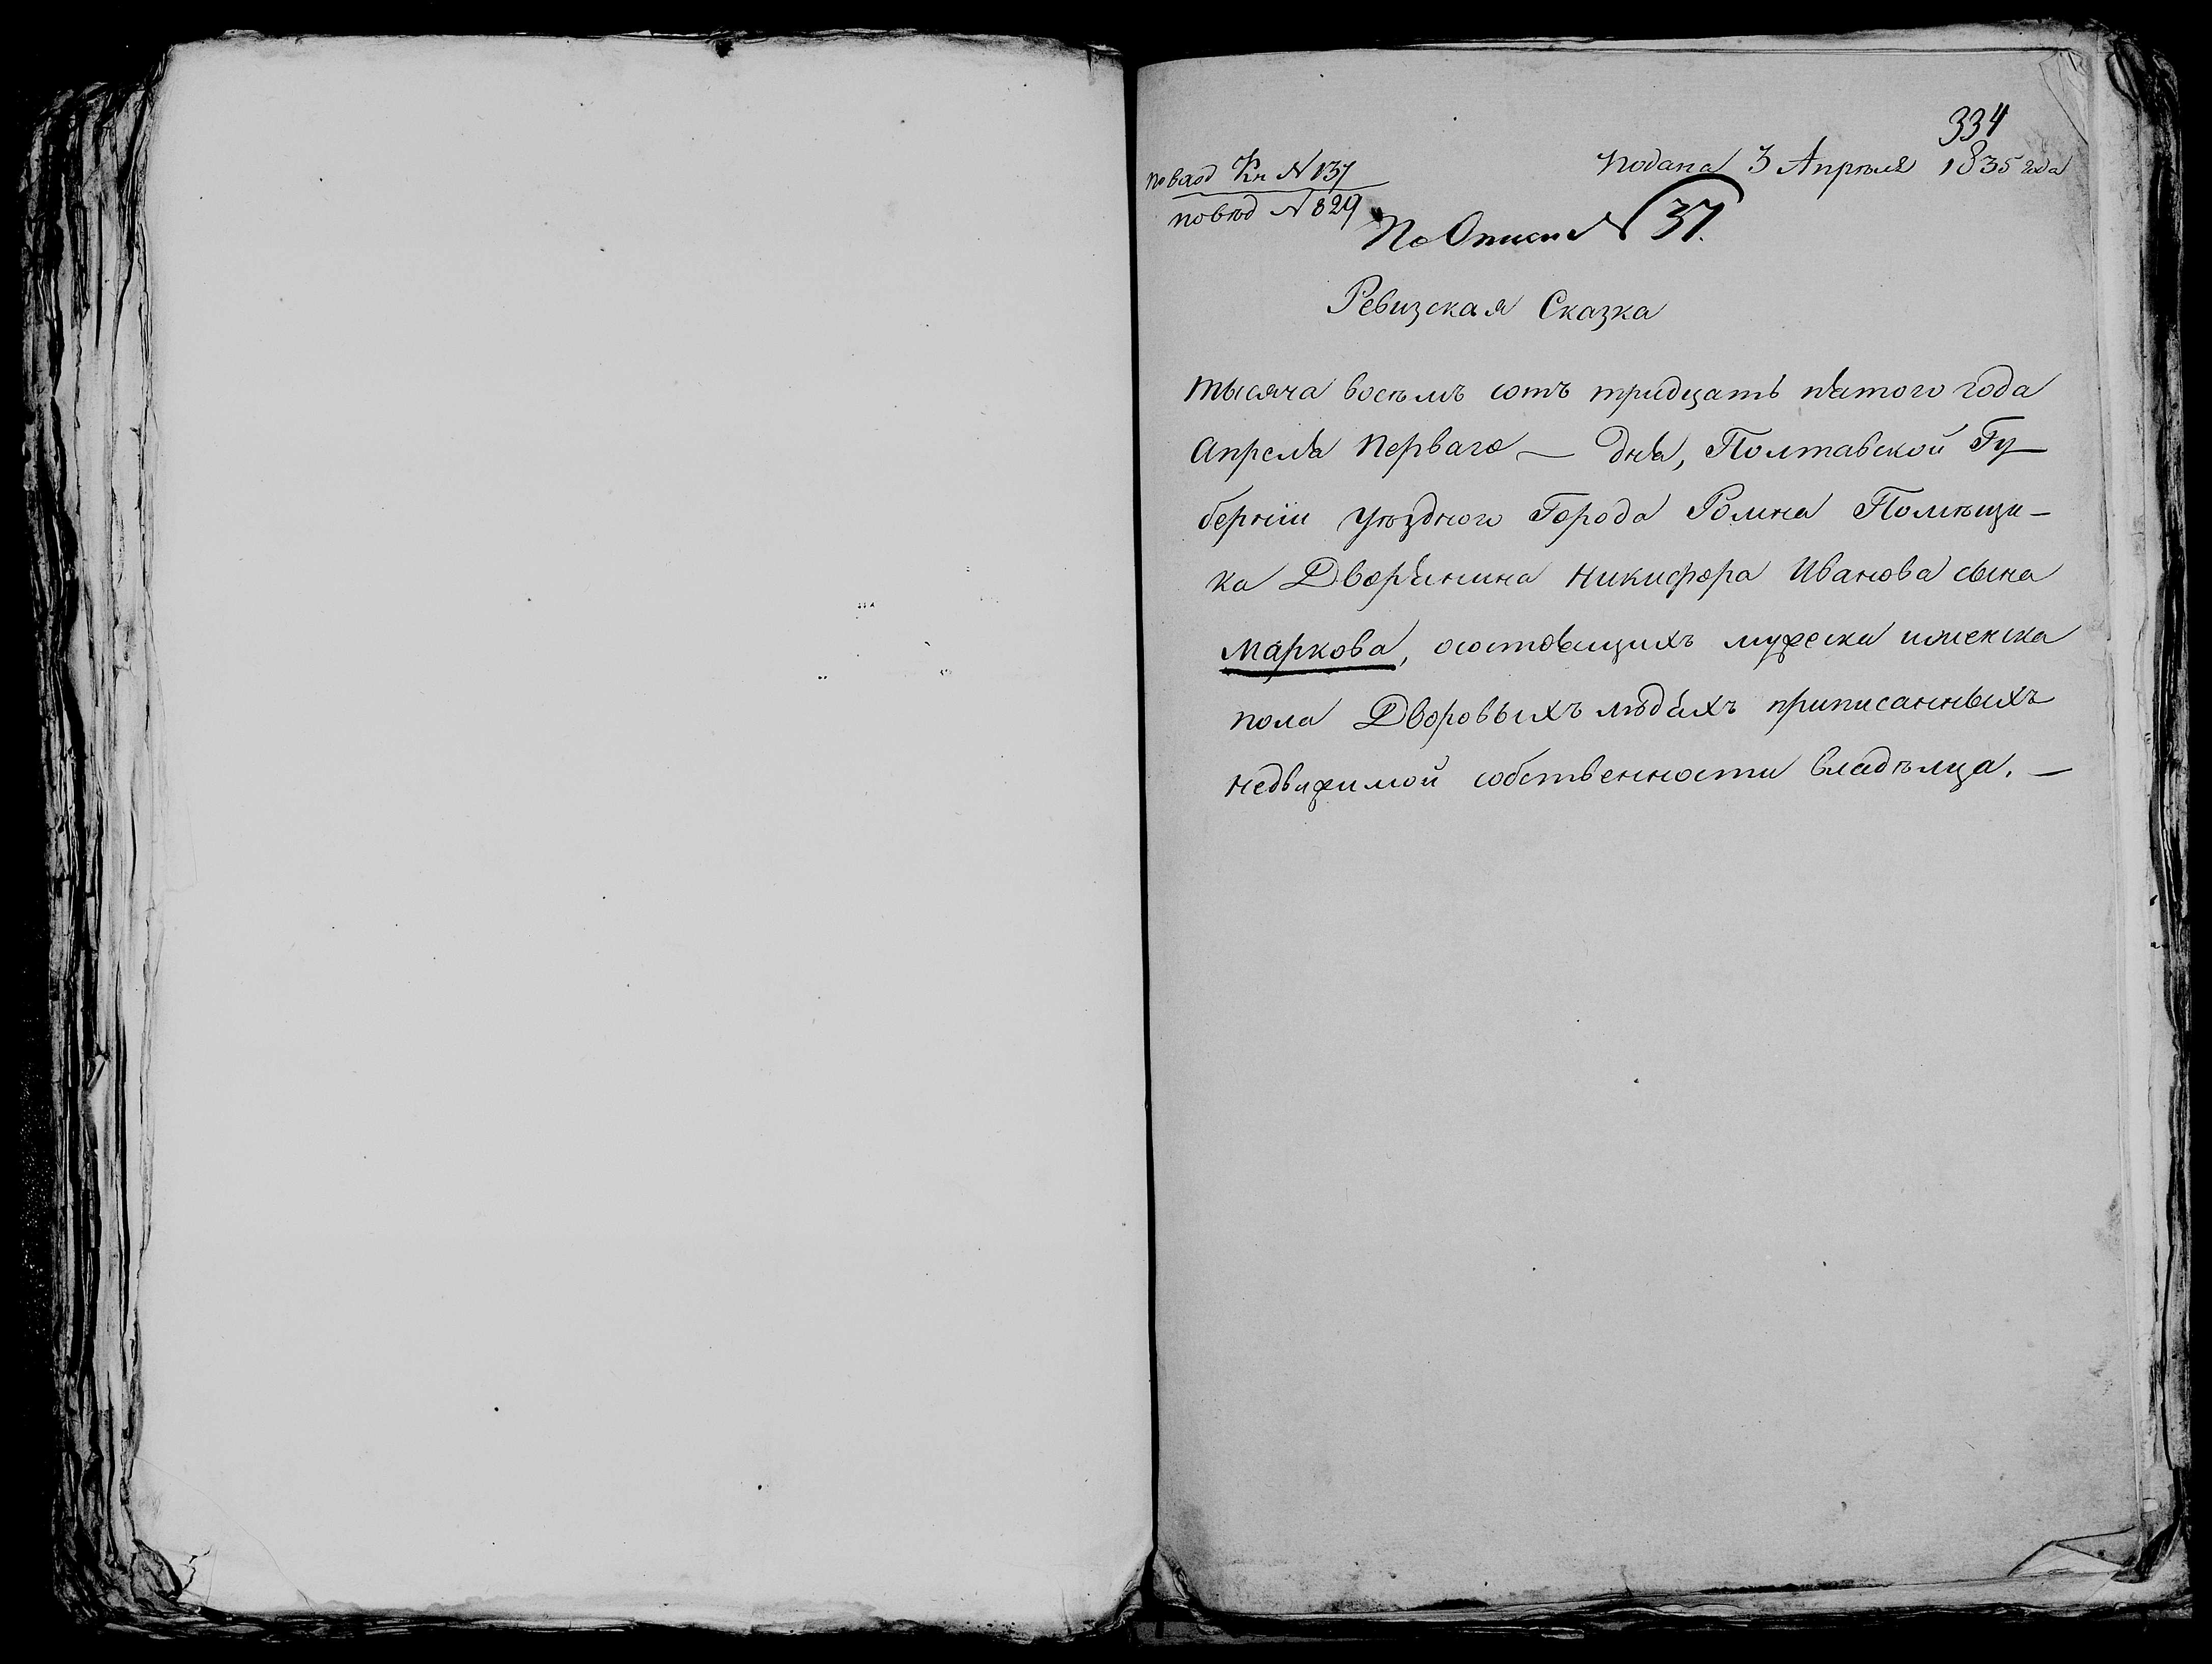 334
подана 3 Апреля 1835 года
по вход Кн № 137
по вѣд № 829
По Описи № 37.
Ревизская Сказка
тысяча восѣмъ сотъ тридцать пятого года
Апреля перваго — дня, Полтавской Гу-
берніи уѣзднаго Города Ромна Помѣщи-
ка Дворянина Никифора Иванова сына
Маркова, осостоящихъ мужеска иженска
пола Дворовыхъ людяхъ приписанныхъ
недвижимой собственности владѣлца. —